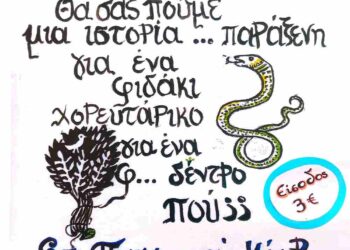 Θα σας πούμε
μια ιστορία ... παράξενη
για ένα
φιδάκι
χορευτάρικο
για ένα
φ... δέντρο
πούjj
Είσοδος
3€